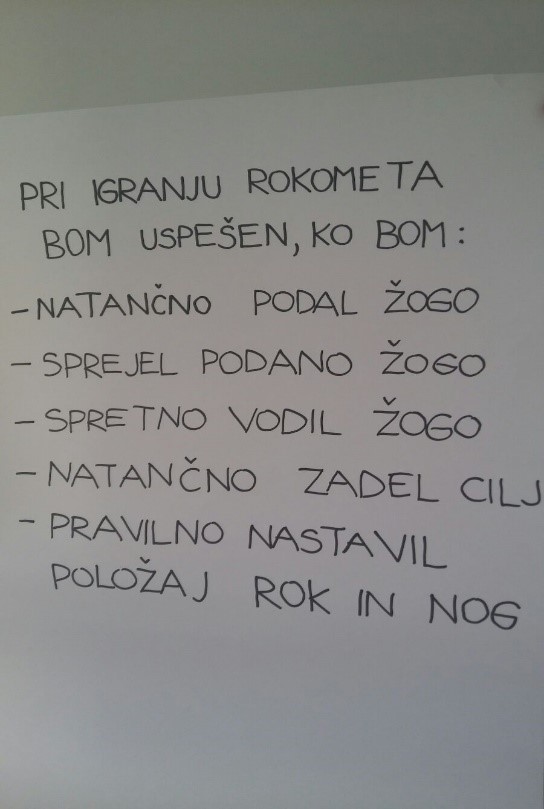 PRI IGRANJU ROKOMETA
BOM USPEŠEN, KO BOM:
- NATANČNO PODAL ŽOGO
- SPREJEL PODANO ŽOGO
- SPRETNO VODIL ŽOGO
- NATANČNO ZADEL CILJ
- PRAVILNO NASTAVIL
POLOŽAJ ROK IN NOG